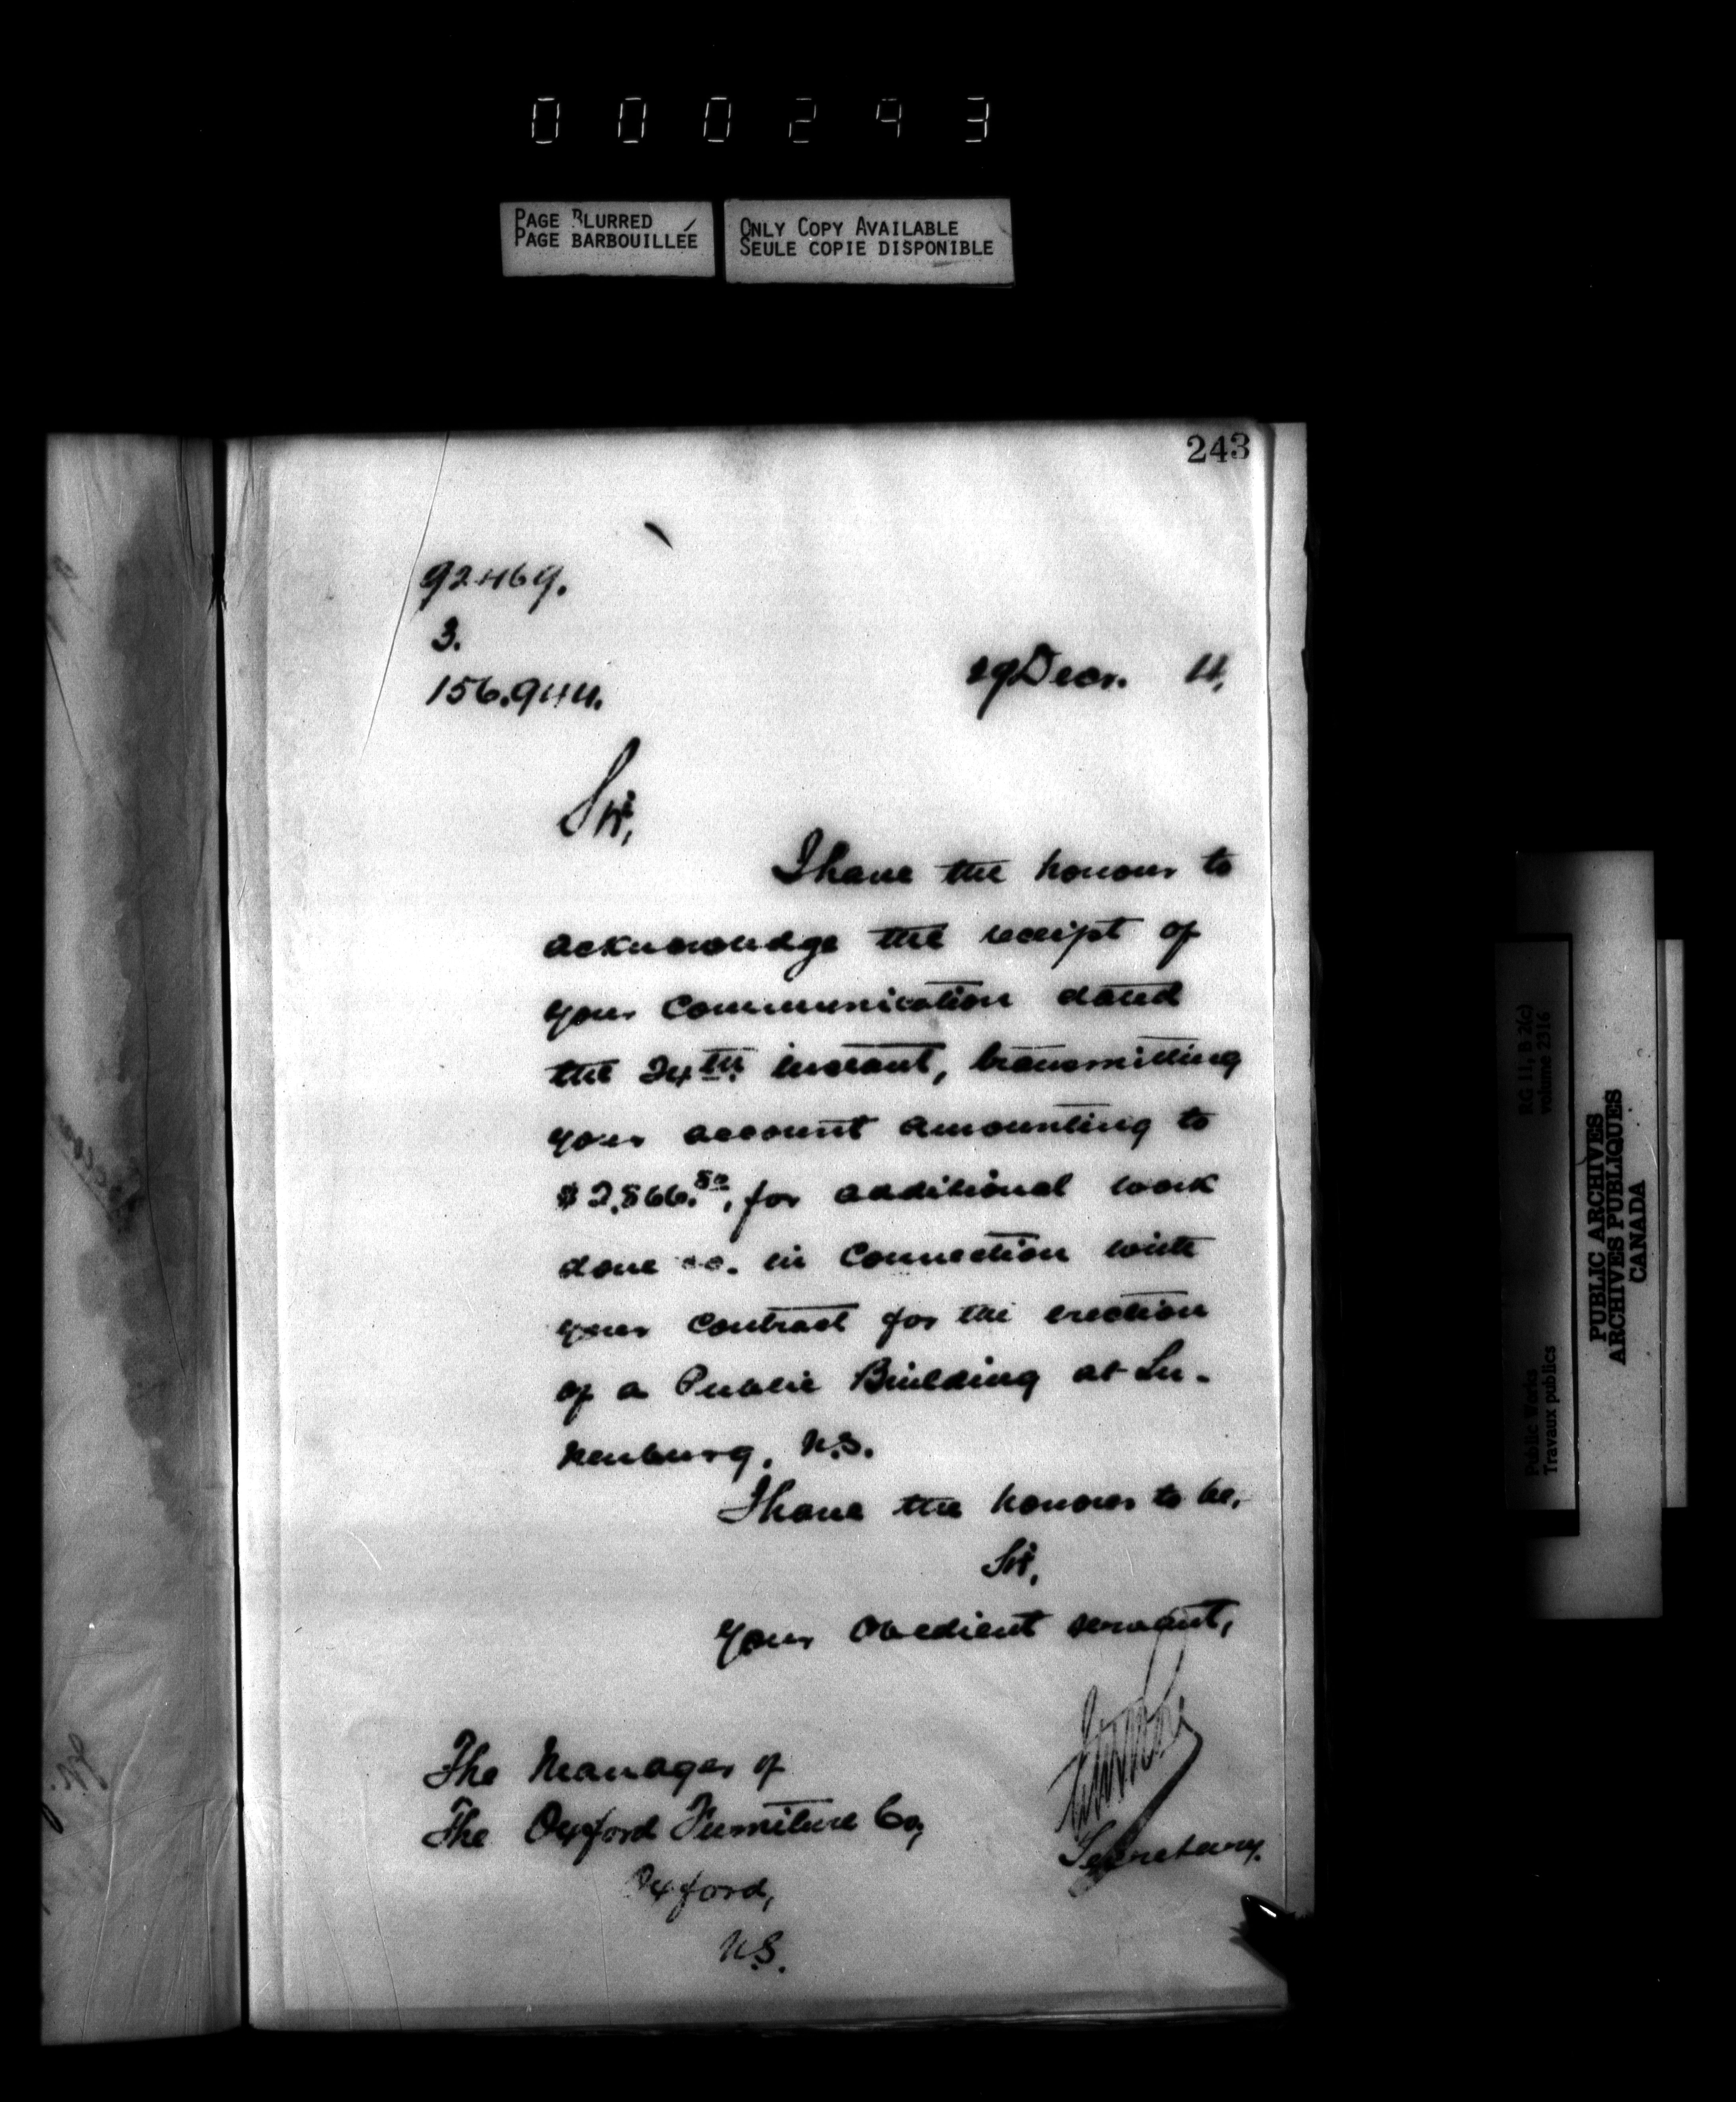 000293
PAGE BLURRED
PAGE BARBOUILLÉE
ONLY COPY AVAILABLE
SEULE COPIE DISPONIBLE
243
92469.
3.
156.944.
29 Decr.
Sir,
I have the honour to
acknowledge the receipt of
your communication dated
the 24th instant, transmitting
your account amounting to
for additional work
done &c. in connection with
your contract for the erection
of a Public Building at Lu-
nenburg, N.S.
I have the honour to be,
Sir,
Your obedient servant,
Secretary.
The Manager of
The Oxford Furniture Co,
Oxford,
N.S.
RG 11, B 2(c)
volume 2316
Public Works
Travaux publics
PUBLIC ARCHIVES
ARCHIVES PUBLIQUES
CANADA